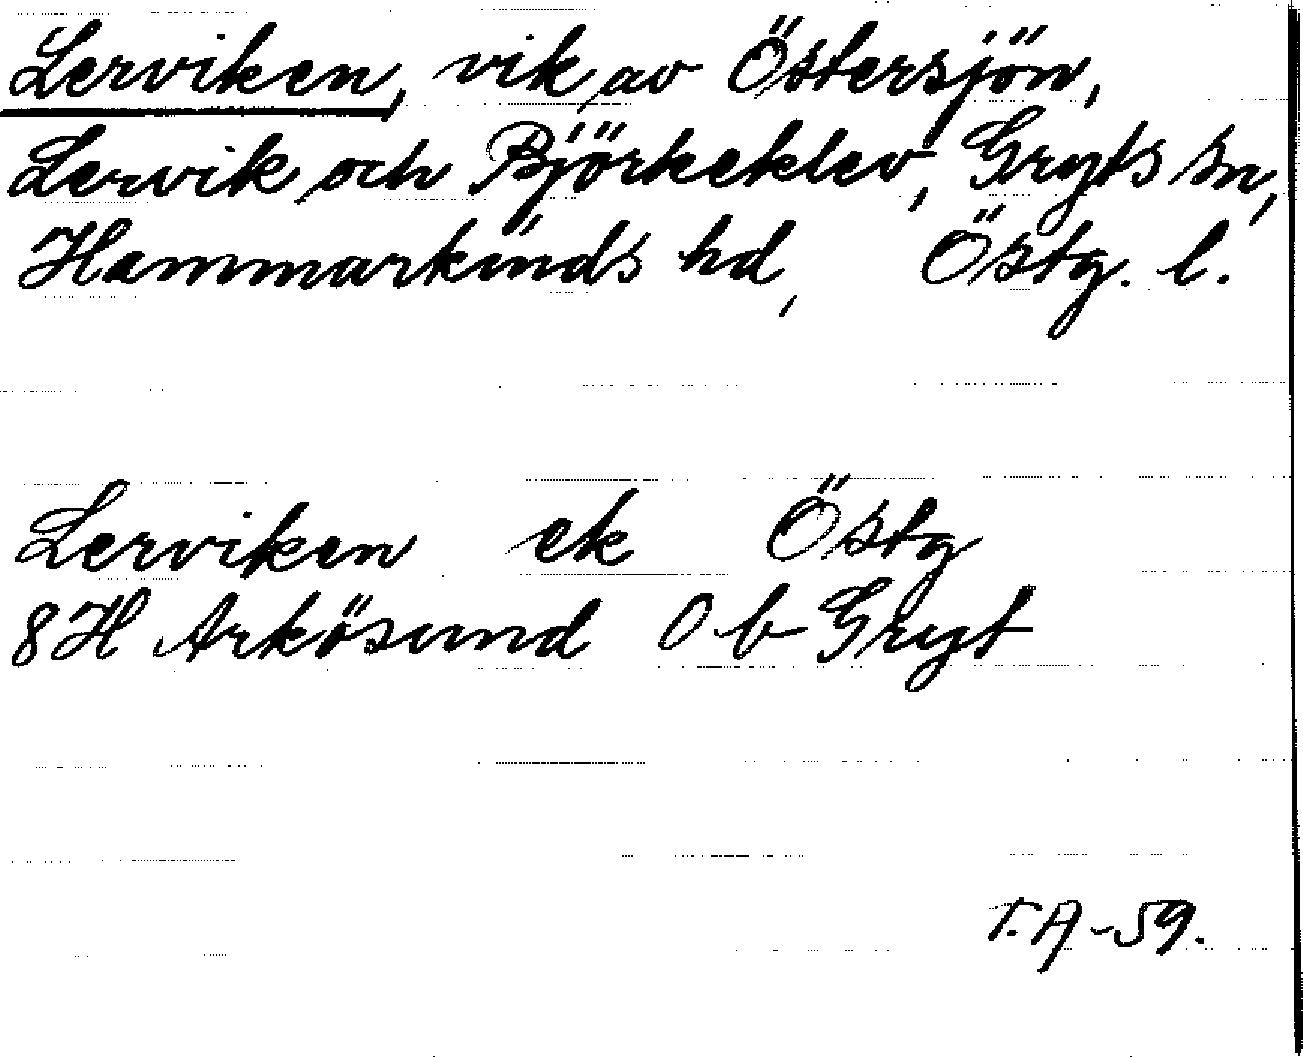 Lerviken, vik av Östersjön,
Lervik och Björkeklev, Gryts sn,
Hammarkinds hd, Östg. l.
Lerviken ek Östg
8H Arkösund O b Gryt
T.A-59.